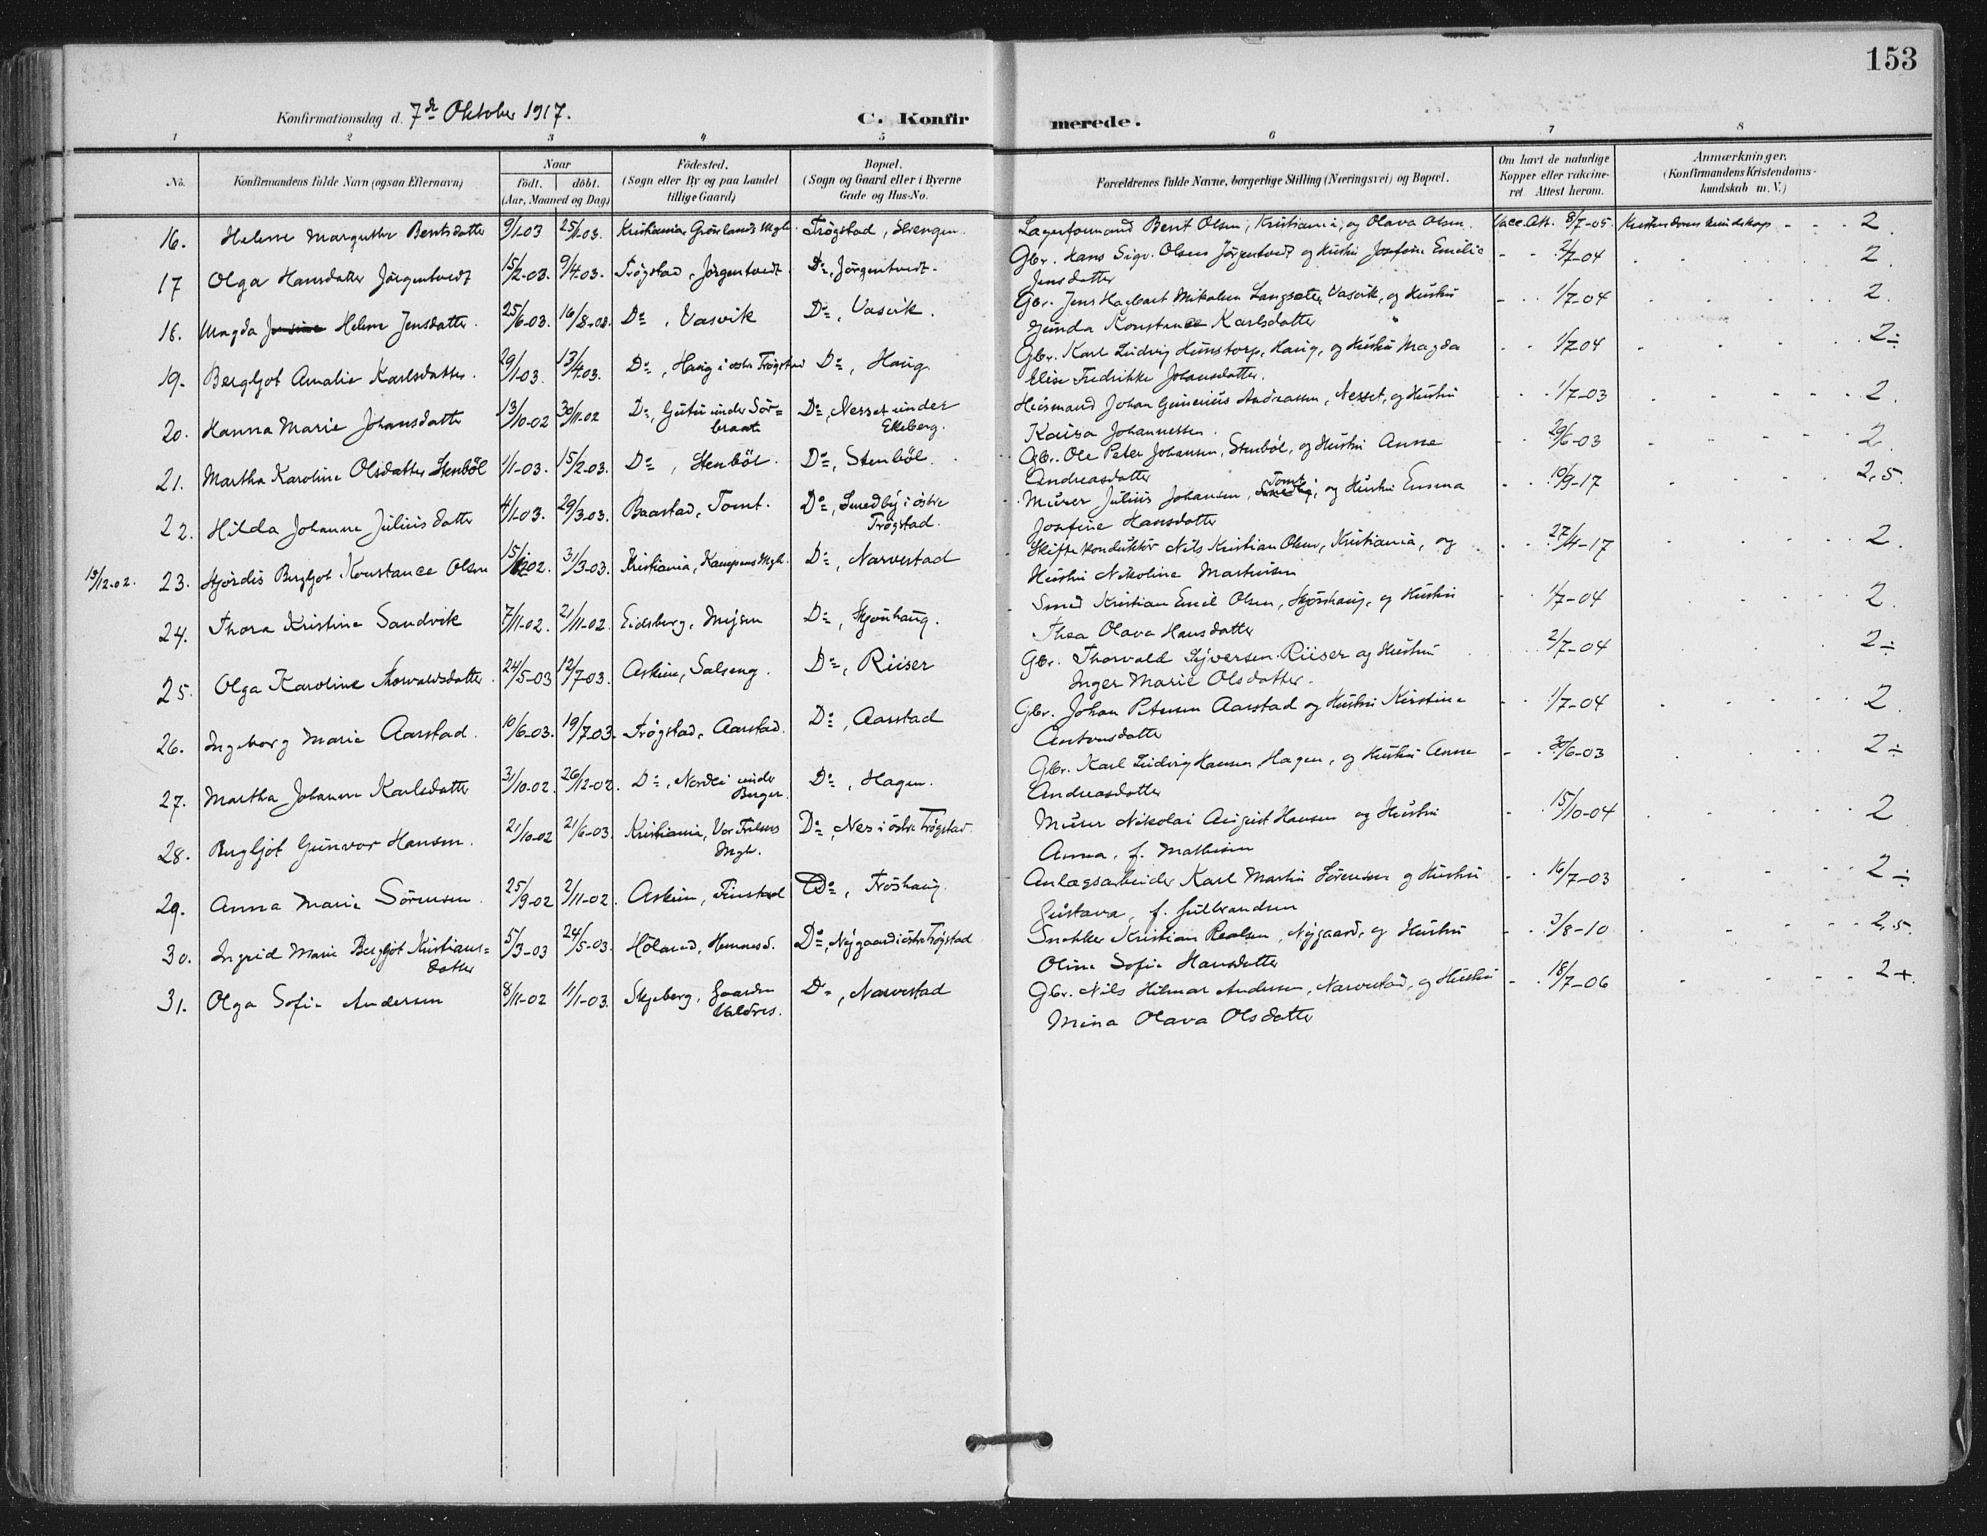 153
Konfirmationsdag d. 7de Oktober 1917.
C. Konfirmerede.
1 2 3 4 5 6 7 8
No. Konfirmandens fulde Navn (ogsaa Efternavn) Naar født. døbt. (Aar, Maaned og Dag) Födested. (Sogn eller By og paa Landet tillige Gaard) Bopæl. (Sogn og Gaard eller i Byerne Gade og Hus-No. Forældrenes fulde Navne, borgerlige Stilling (Næringsvei) og Bopæl. Om havt de naturlige Kopper eller vakcineret. Attest herom. Anmærkninger. (Konfirmandens Kristendomskundskab m. V.)
16. Helene Margrethe Berntsdatter 9/1-03 25/1-03. Kristiania Grønlands Mgh. Trøgstad, Lagerformand Bernt Olsen, Kristiania, og Olava Olsen Vacc. Att. 8/7-05. Kristendomskundskap 2.
17 Olga Hansdatter Jørgentvedt 15/2-03. 9/4-03. Trøgstad, Jørgentvedt Do, Jørgentvedt. Gbr. Hans Sigv. Olsen Jørgentvedt og Hustru Josefine Emilie 2/7-04 2.
Jensdatter
18. Magda Helene Jensdatter. 25/6-03. 16/8-03. Do, Vasvik Do, Vasvik. Gbr. Jens Hagbart Mikalsen Langsæter, Vasvik, og Hustru 1/7-04 2.
Gunda Konstance Karlsdatter
19. Bergljot Amalie Karlsdatter. 29/1-03. 13/4-03. Do, Haug i østre Trøgstad Do, Haug. Gbr. Karl Ludvig Hunstorp, Haug, og Hustru Magda 1/7-04 2÷
Elise Fredrikke Johansdatter.
20. Hanna Marie Johansdatter 13/10-02 30/11-02 Do, under Sør= Do, Nesset under Husmand Johan Andreassen, Nesset, og Hustru 1/7-03 2.
braate Ekeberg. Kaisa Johannessen.
21. Martha Karoline Olsdatter Stenbøl 1/1-03. 15/2-03. Do, Stenbøl. Do, Stenbøl. Gbr. Ole Peter Johansen, Stenbøl, og Hustru Anne 29/6-03 2.
Andreasdatter
22. Hilda Johanne Juliusdatter 4/1-03. 29/3-03. Baastad, Tomt. Do, Smedby i østre Murer Julius Johansen, Tomt, og Hustru Emma 10/9-17 2,5.
Trøgstad. Josefine Hansdatter
15/12-02. 23. Hjørdis Bergljot Konstance Olsen 15/12 02. 31/3-03. Kristiania, Kampens Mgh. Do, Narvestad Nils Kristian Olsen, Kristiania, og 27/4-17 2.
Hustru Nikoline Martinsen
24. Thora Kristine Sandvik 7/11-02. 21/11-02. Eidsberg, Mysen Do, Skjønhaug. Smed Kristian Emil Olsen, Skjønhaug, og Hustru 1/7-04 2.
Thea Olava Hansdatter
25. Olga Karoline Thorvaldsdatter. 24/5-03 12/7-03. Askim, Salseng. Do, Riiser Gbr. Thorvald Syversen Riiser og Hustru 2/7-04 2÷
Inger Marie Olsdatter.
26. Ingeborg Marie Aarstad. 10/6-03. 19/7-03. Trøgstad, Aarstad. Do, Aarstad Gbr. Johan Petersen Aarstad og Hustru Kirstine 1/7-04 2.
Antonsdatter
27. Martha Johanne Karlsdatter 31/10-02. 26/12-02. Do, under Berger. Do, Hagen. Gbr. Karl Ludvig Hansen, Hagen, og Hustru Anne 30/6-03 2÷
Andreasdatter
28. Bergljot Gunvor Hansen. 21/10-02 21/6-03. Kristiania, Vor Frelsers Do, Nes i østre Trøgstad. Murer Nikolai August Hansen og Hustru 15/10-04 2
Mgh. Anna, f. Mathisen
29. Anna Marie Sørensen. 25/9-02 2/11-02. Askim, Finstad Do, Frøshaug. Anlægsarbeider Karl Martin Sørensen og Hustru 16/7-03 2÷
Gustava, f. Gulbrandsen
30. Ingrid Marie Bergljot Kristians= 5/3-03 24/5-03. Høland, Do, Nygaard i østre Trøgstad Snekker Kristian Nygaard, og Hustru 3/8-10 2,5.
datter Oline Sofie Hansdatter
31. Olga Sofie Andersen 8/11-02 1/1-03. Skjeberg, Gaarden Do, Narvestad Gbr. Nils Hilmar Andersen, Narvestad, og Hustru 18/7-06 2+.
Valdres. Mina Olava Olsdatter